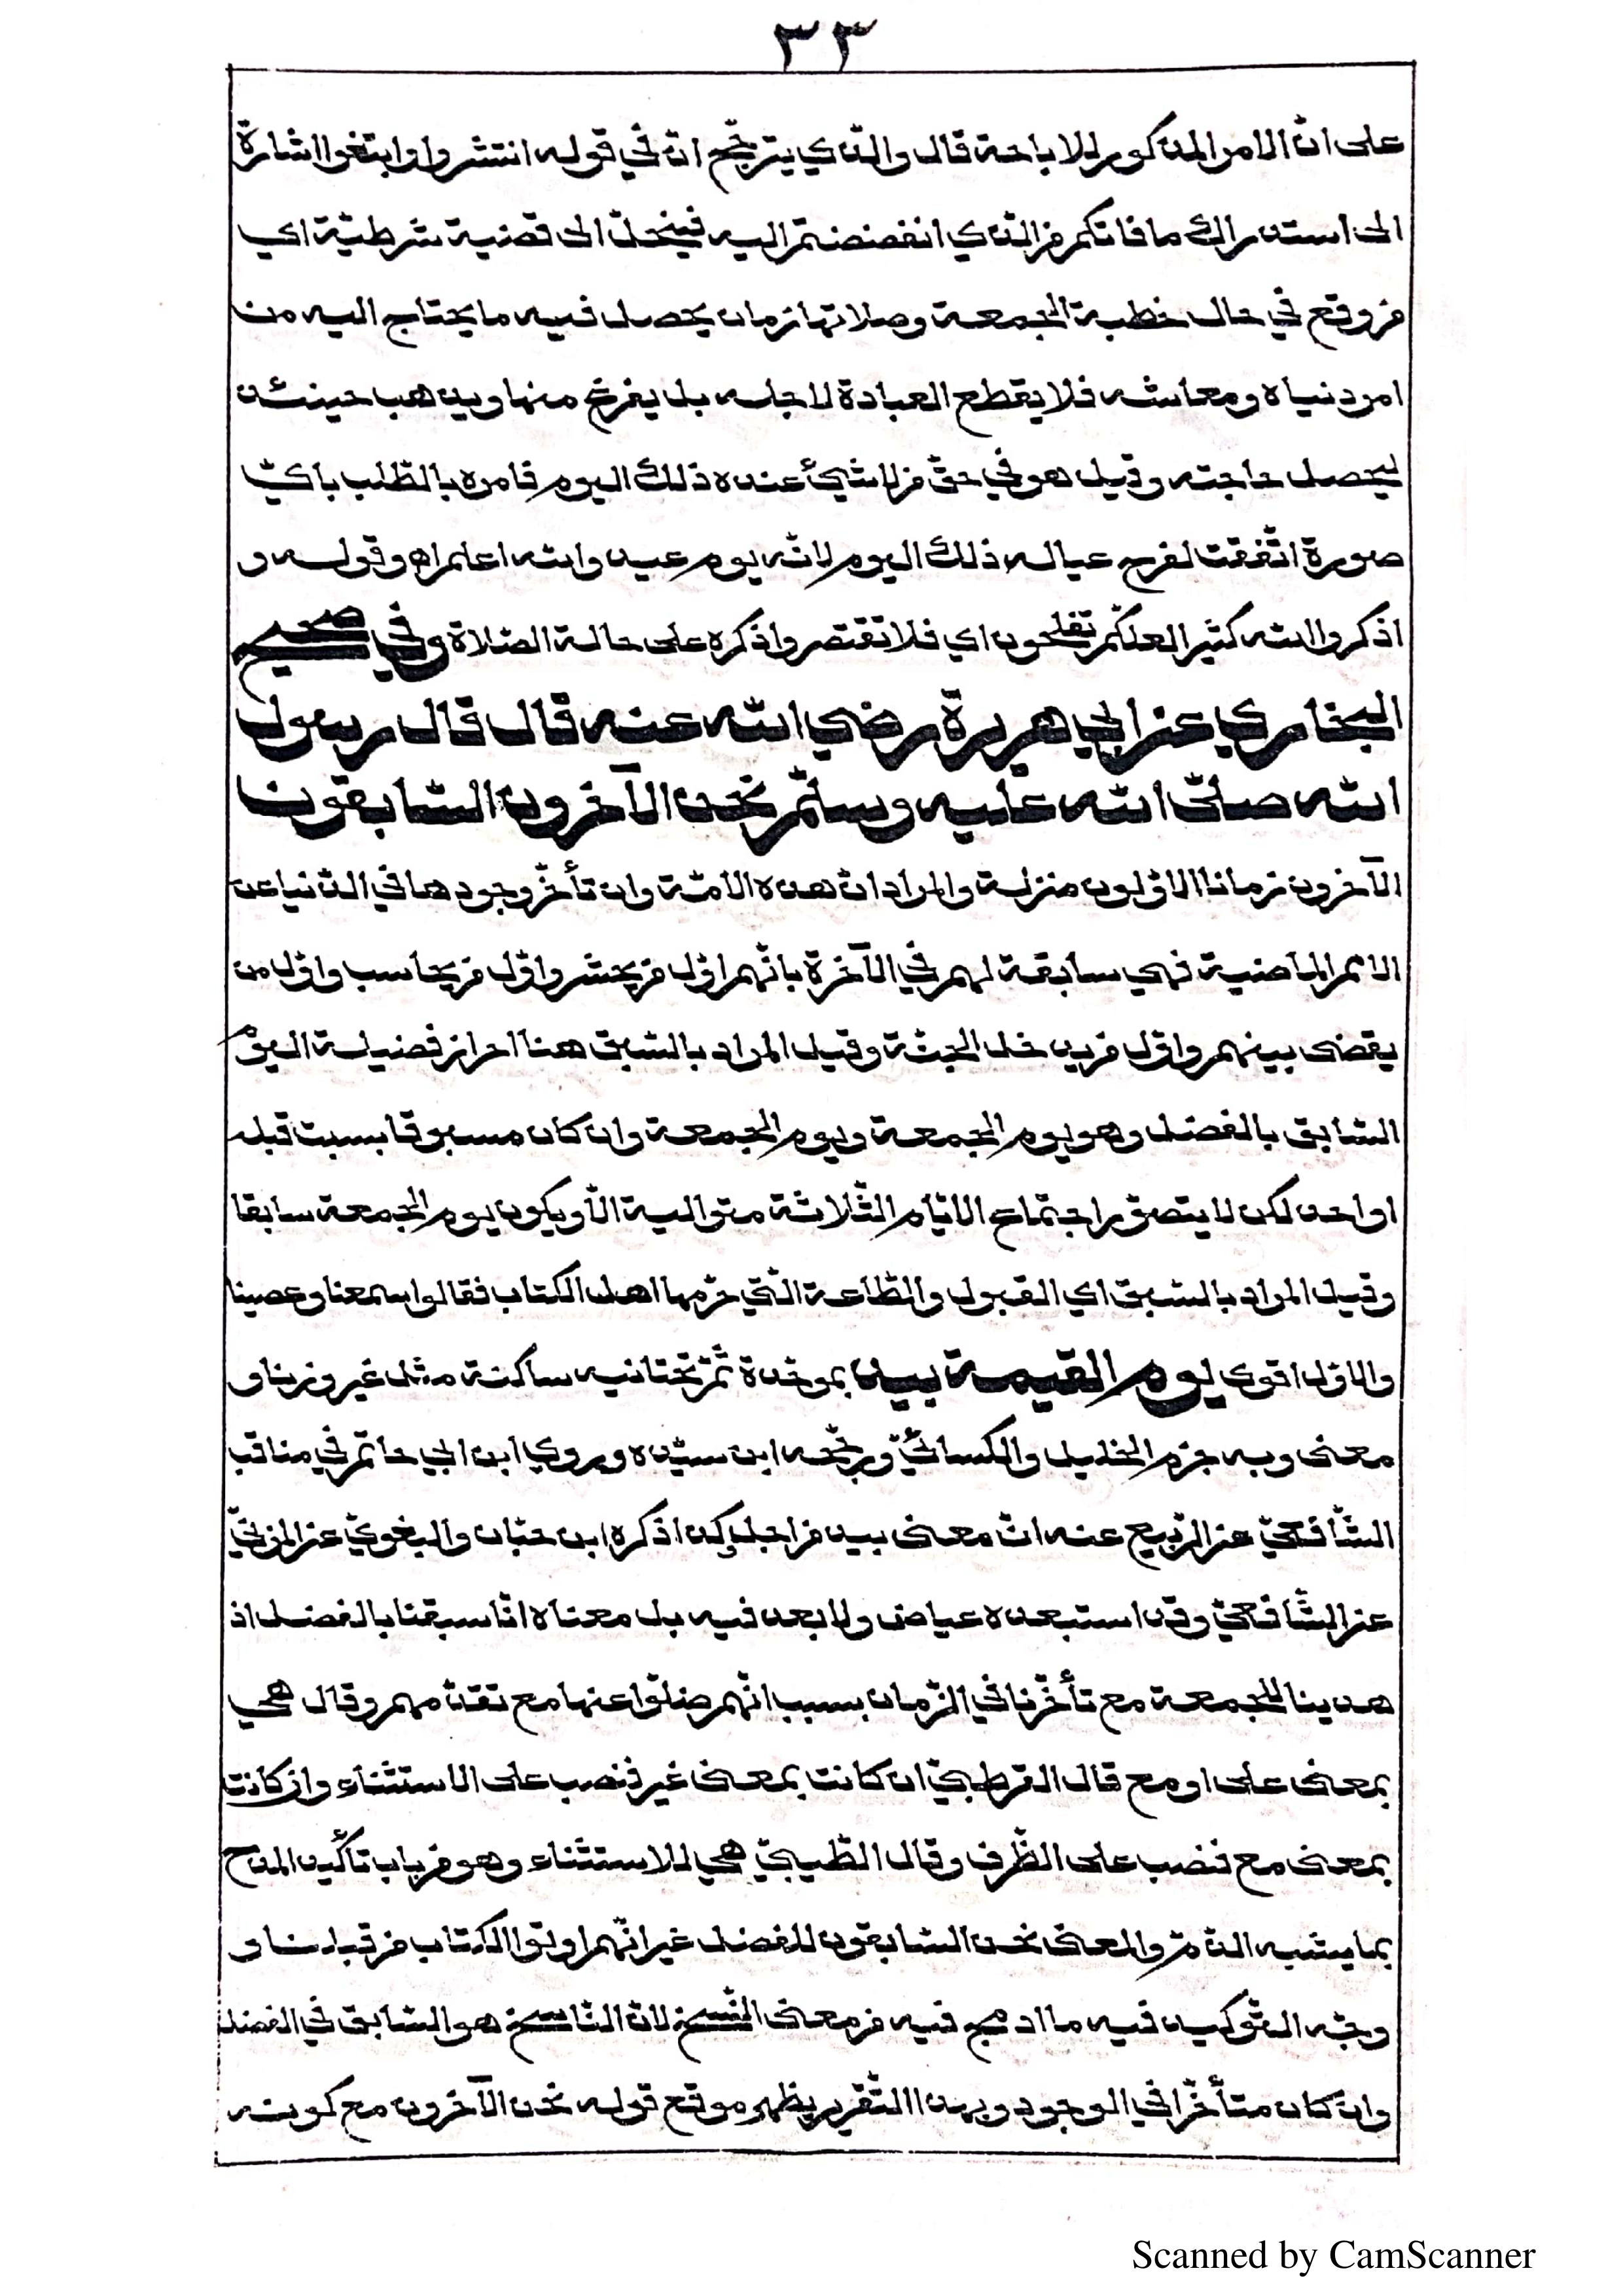 ٣٣
على انّ الامر المذكور للاباحة قال والذي يترجّح ان في قوله انتشروا وابتغوا اشارة
الى استدراك ما فاتكم من الذي انفضضتم اليه فينحلّ الى قضية شرطيّة اي
من وقع في حال خطبة الجمعة وصلاتها زمان يحصل فيه ما يحتاج اليه من
امر دنياه ومعاشه فلا يقطع العبادة لاجله بل يفرغ منها ويذهب حينئذ
ليحصل حاجته وقيل هو في حقّ من لا شيئ عنده ذلك اليوم فامره بالطّلب بايّ
صورة اتّفقت لفرح عياله ذلك اليوم لانّه يوم عيد والله اعلم اه وقوله و
اذكروا الله كثيرا لعلّكم تفلحون اي فلا تقتصروا ذكره على حالة الصّلاة وفي صحيح
البخاري عن ابي هريرة رضي الله عنه قال قال رسول
الله صلّى الله عليه وسلّم نحن الآخرون السّابقون
الآخرون زمانا الاوّلون منزلة والمراد انّ هذه الامّة وان تأخّر وجودها في الدّنيا عن
الامم الماضية فهي سابقة لهم في الآخرة بانّهم اوّل من يحشر واوّل من يحاسب واوّل من
يقضى بينهم واوّل من يدخل الجنّة وقيل المراد بالسّبق هنا احراز فضيلة اليوم
السّابق بالفضل وهو يوم الجمعة ويوم الجمعة وان كان مسبوقا بسبت قبله
او احد لكن لا يتصوّر اجتماع الايّام الثّلاثة متوالية الّا ويكون يوم الجمعة سابقا
وقيل المراد بالسّبق اي القبول والطّاعة الّتي حرّمها اهل الكتاب فقالوا سمعنا وعصينا
والاوّل اقوى يوم القيمة بيد بموحّدة ثمّ تحتانيه ساكنة مثل غير وزنا و
معنى وبه جزم الخليل والكسائيّ ورجّحه ابن سيّده وروي ابن ابي حاتم في مناقب
الشّافعيّ عن الرّبيع عنه انّ معنى بيد من اجل وكذا ذكره ابن حبّان والبغويّ عن المزنيّ
عن الشّافعيّ وقد استبعده عياض ولا بعد فيه بل معناه انّا سبقنا بالفضل اذ
هدينا للجمعة مع تأخّرنا في الزّمان بسبب انّهم ضلّوا عنها مع تقدّمهم وقال هي
بمعنى على او مع قال القرطبيّ ان كانت بمعنى غير فنصب على الاستثناء وان كانت
بمعنى مع فنصب على الظّرف وقال الطّيبيّ هي للاستثناء وهو من باب تأكيد المدح
بما يشبه الذّمّ والمعنى نحن السّابقون للفضل غير انّهم اوتوا الكتاب من قبلنا و
وجّه التّوكيد فيه ما ادمج فيه من معنى النّسخ لانّ النّاسخ هو السّابق في الفضل
وان كان متأخّرا في الوجود وبهذا التّقرير يظهر موقع قوله نحن الآخرون مع كونه
Scanned by CamScanner